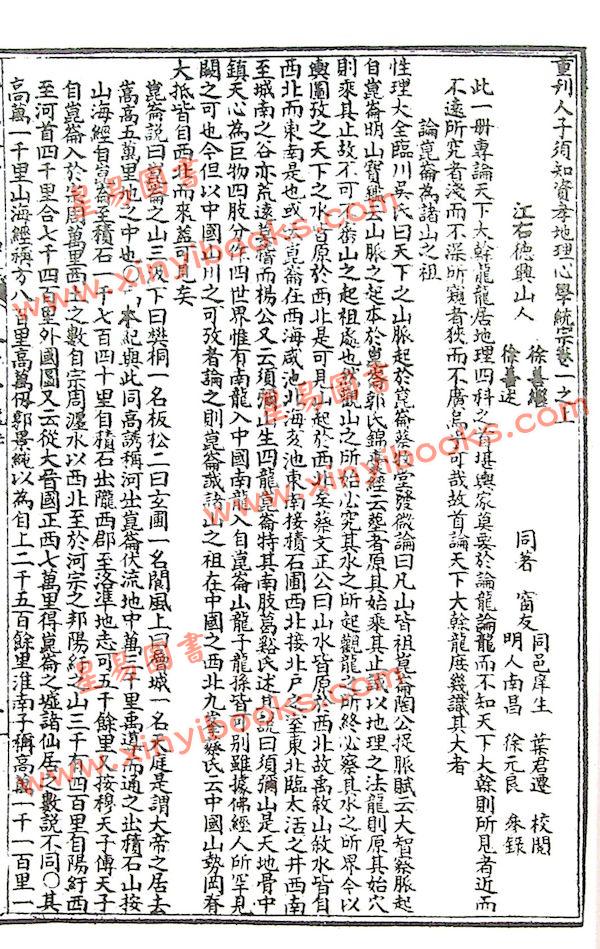 重刋人子須知資孝地理心學統宗卷一之上
江右德興山人 徐善繼 徐善述 同著 窗友 同邑庠生 葉君遷 校閱 明人南昌 徐元良 參錄
此一册專論天下大幹龍龍居地理四科之首堪輿家莫要於論龍論龍而不知天下大幹則所見者近而
不遠所究者淺而不深所窺者狹而不廣烏乎可哉故首論天下大幹龍庶幾識其大者
論崑崙為諸山之祖
性理大全臨川吳氏曰天下之山脈起於崑崙蔡牧堂發微論曰凡山皆祖崑崙閩公捉脈賦云大智察脈起
自崑崙明山寶興云山脈之起本於崑崙郭氏錦囊經云葬者原其始乘其止識以地理之法龍則原其始穴
則乘其止故不可不察山之起祖處也然觀山之所始必究其水之所起觀龍之所終必察其水之所界今以
輿圖攷之天下之水皆原於西北是可見山起於西北矣蔡文正公曰山水皆原於西北故禹敘山敘水皆自
西北而東南是也或云崑崙在西海戌池北海亥池東南接積石圃西北接北戶之室東北臨大活之井西南
至城南之谷亦荒遠莫稽而楊公又云須彌山生四龍崑崙特其南肢葛谿氏述其說曰須彌山是天地骨中
鎮天心為巨物四肢分作四世界惟有南龍入中國南龍入自崑崙山龍子龍孫皆分別雖據佛經人所罕見
闕之可也今但以中國山川之可攷者論之則崑崙誠諸山之祖在中國之西北九峯蔡氏云中國山勢岡脊
大抵皆自西北而來蓋可見矣
崑崙說曰崑崙之山三級下曰樊桐一名板松二曰玄圃一名閬風上曰層城一名天庭是謂大帝之居去
嵩高五萬里地之中也〇本紀與此同高誘稱河出崑崙伏流地中萬三千里禹導而通之出積石山按
山海經自崑崙至積石一千七百四十里自積石出隴西郡至洛準地志可五千餘里又按穆天子傳天子
自崑崙入於宗周萬里西土之數自宗周瀍水以西北至於河宗之邦陽紆之山三千有四百里自陽紆西
至河首四千里合七千四百里外國圖又云從大晉國正西七萬里得崑崙之墟諸仙居之數說不同〇其
高萬一千里山海經稱方八百里高萬仞郭景純以為自上二千五百餘里淮南子稱高萬一千一百里一
星易圖書
www.xinyibooks.com
星易圖書
www.xinyibooks.com
星易圖書
www.xinyibooks.com